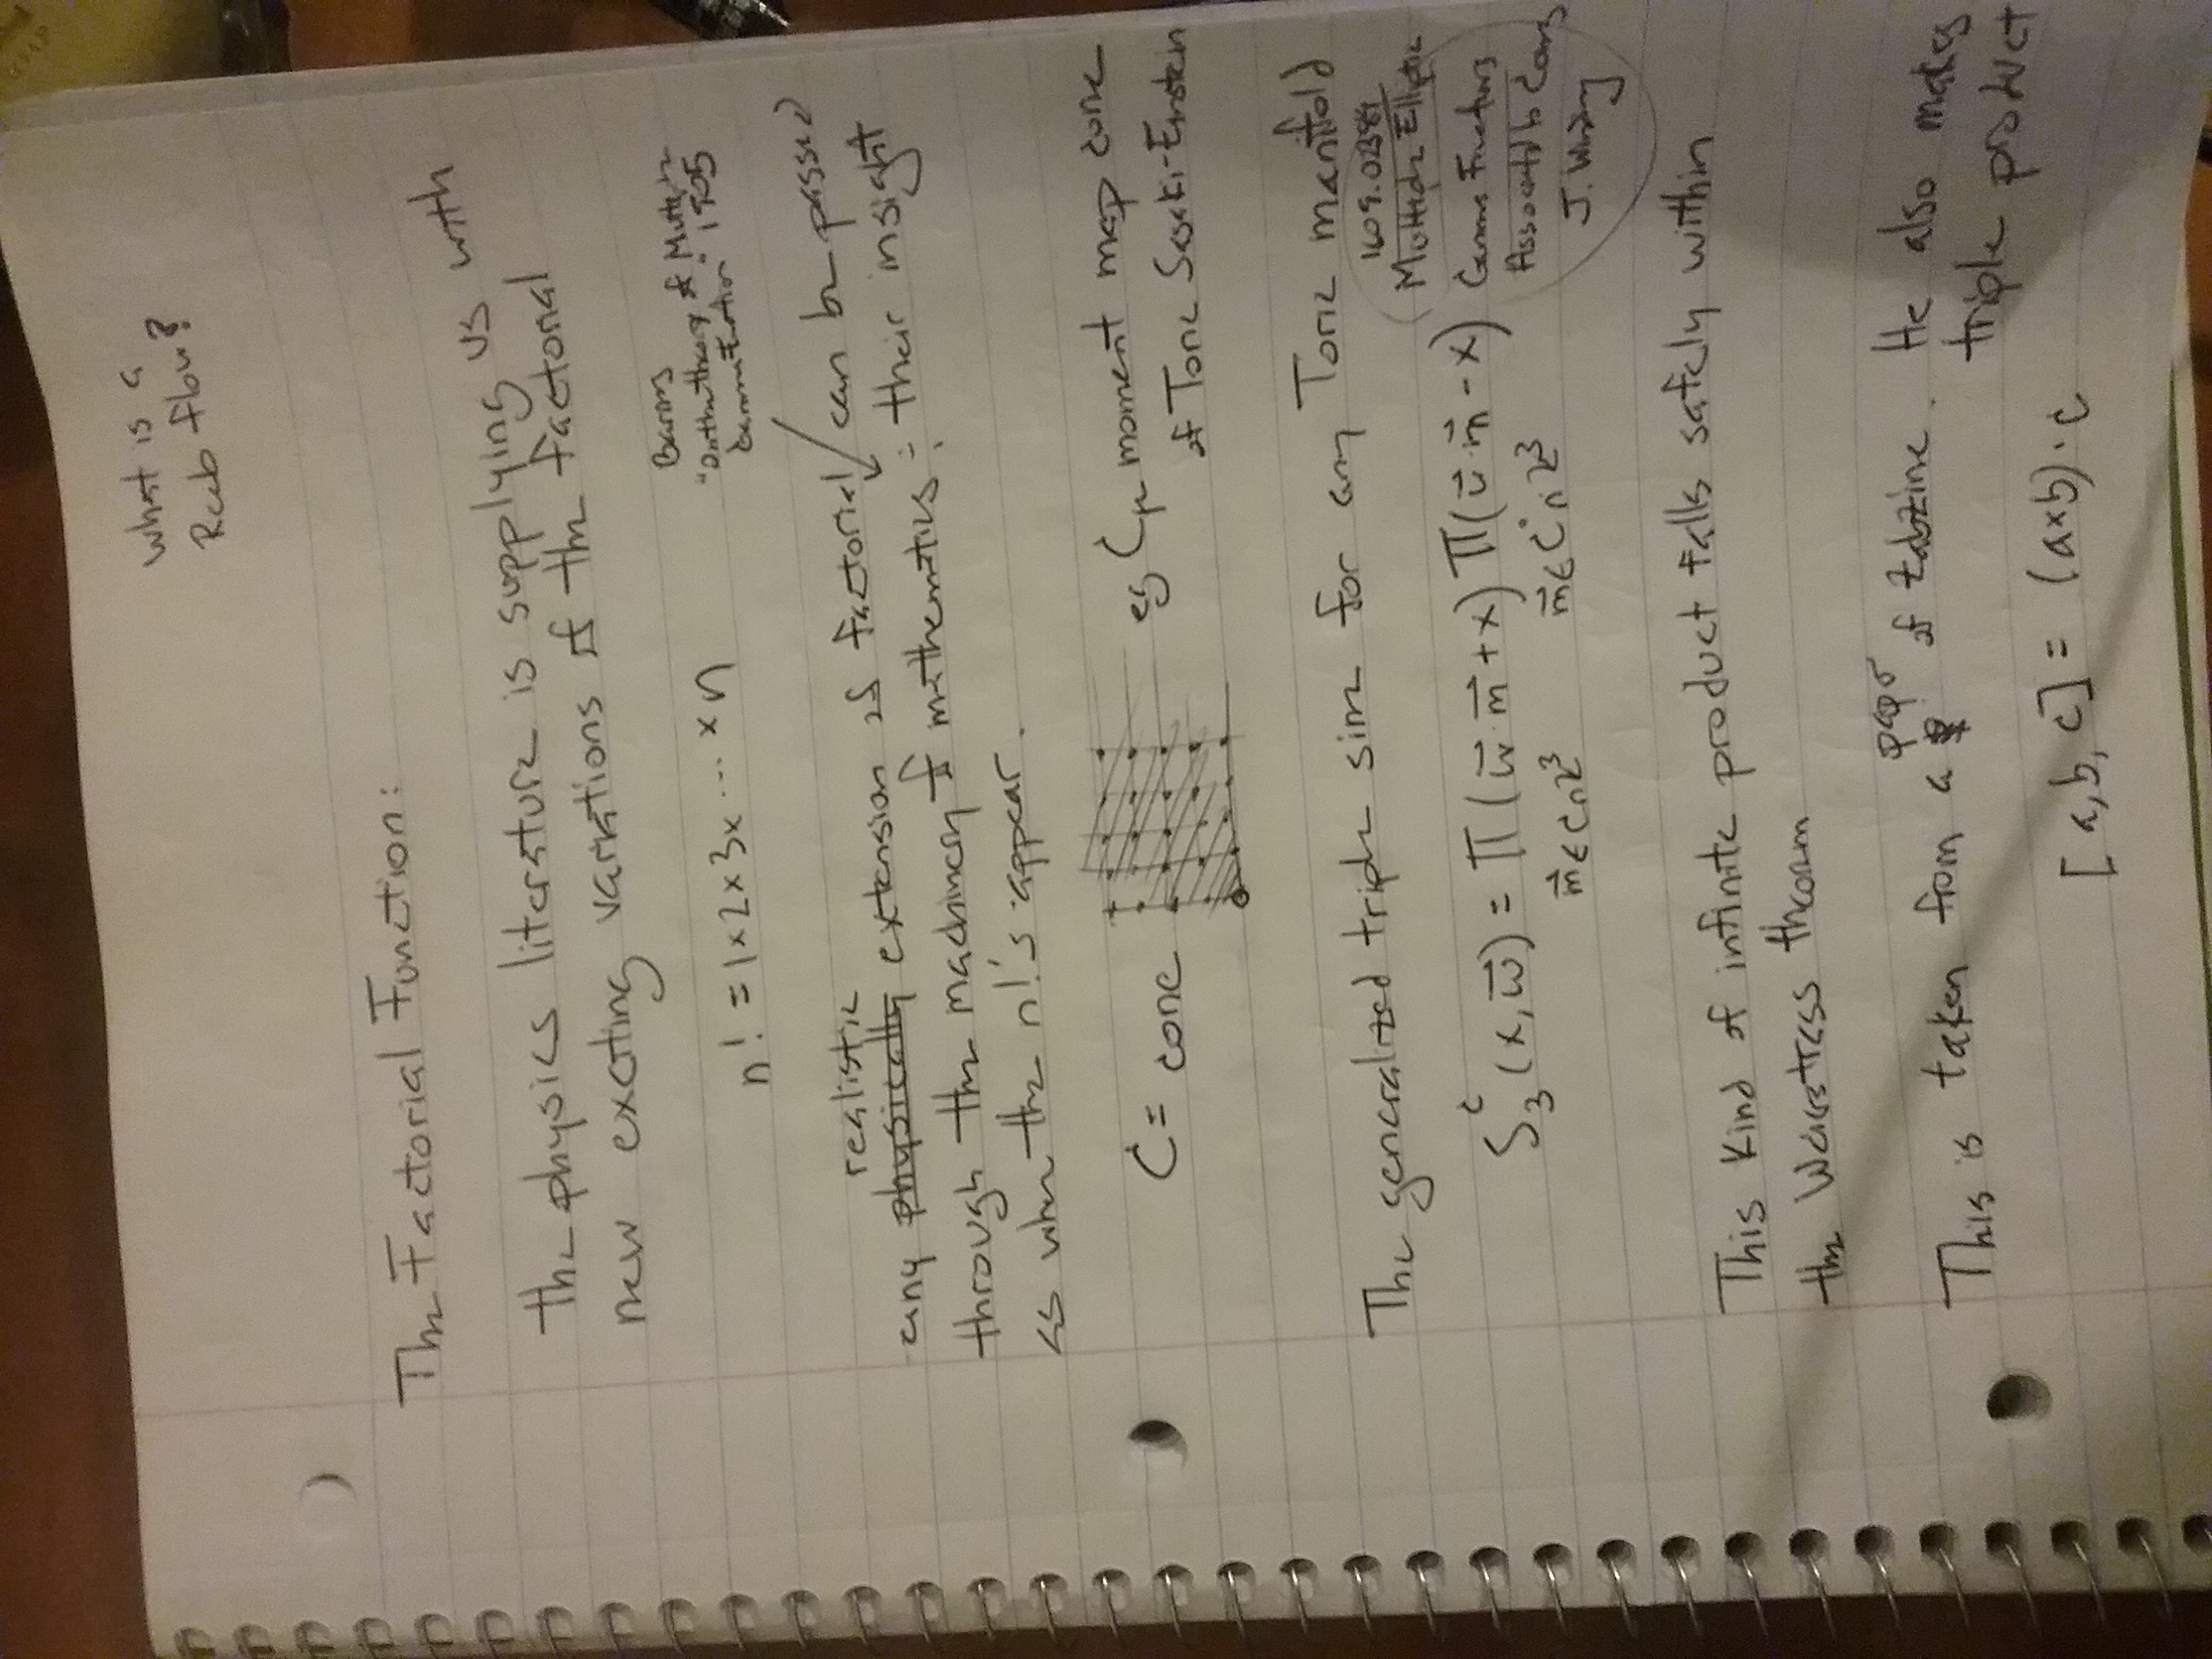 What is a
Reeb flow?
The Factorial Function:
the physics literature is supplying us with
new exciting variations of the factorial
n! = 1×2×3× ... × n
Barnes
"On the theory of Multiple
Gamma Function" 1905
realistic
any physically extension of factorial can be passed
through the machinery of mathematics ; their insight
as when the n!'s appear.
C = cone
eg Cμ moment map cone
of Toric Sasaki-Einstein
The generalized triple sine for any Toric manifold
1609.02384
Multiple Elliptic
Gamma Functions
Associated to Cones
J. Winding
S₃ᶜ(x, ω⃗) = Π(ω⃗·m⃗ + x) Π(ω⃗·m⃗ - x)
m⃗ ∈ C∩Z³ m⃗ ∈ C°∩Z³
This kind of infinite product falls safely within
the Weierstress theorem
This is taken from a paper of Zabzine. He also makes
triple product
[a, b, c] = (a×b)·c